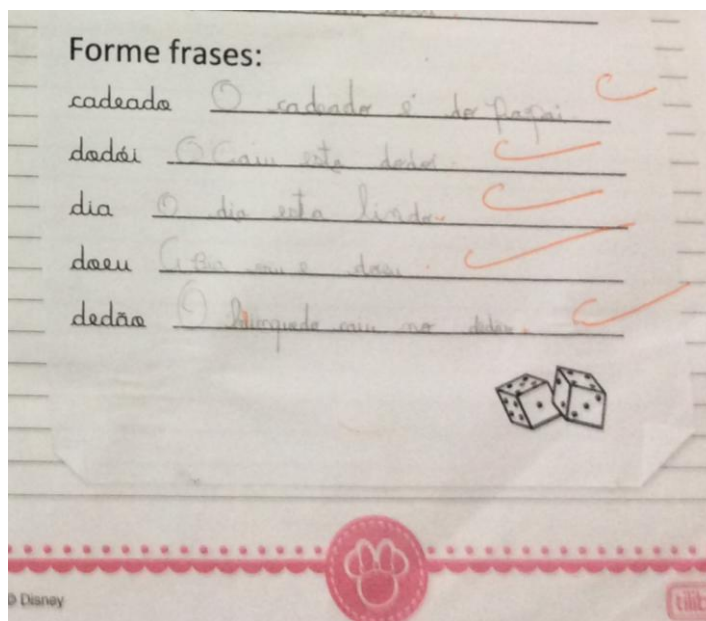 Forme frases:
cadeado O cadeado é do papai.
dodói O Caiu esta dodoi.
dia O dia esta lindo.
doeu caiu e doeu.
dedão O brinquedo caiu no dedão.
© Disney
tilib